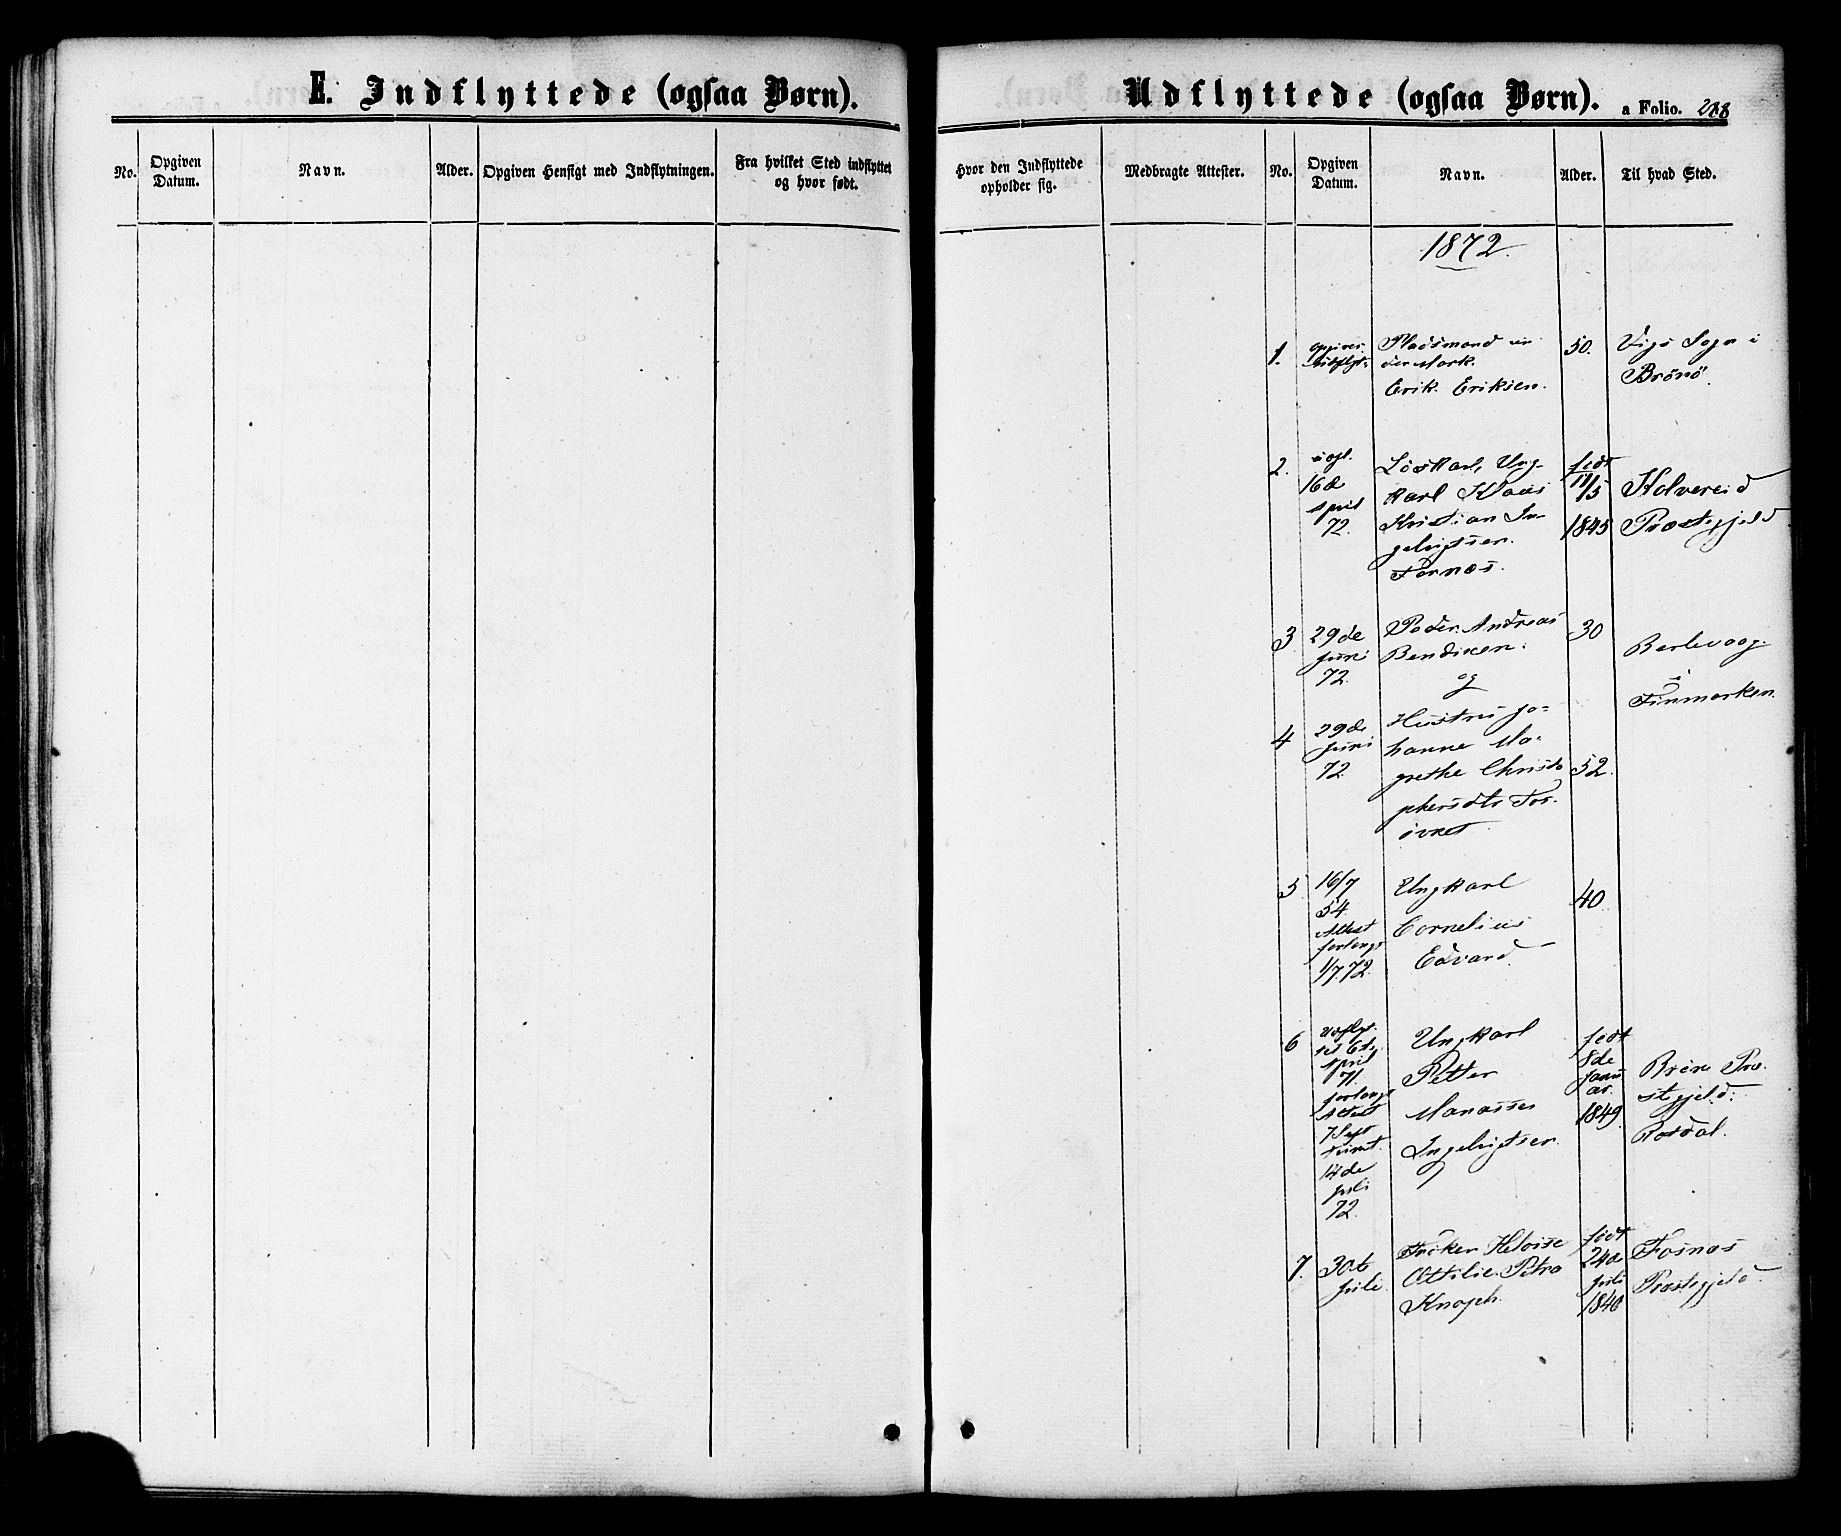 E. Indflyttede (ogsaa Børn).
No.
Opgiven Datum.
Navn.
Alder.
Opgiven Hensigt med Indflytningen.
Fra hvilket Sted indflyttet og hvor født.
Udflyttede (ogsaa Børn).
a Folio. 288
Hvor den Indflyttede opholder sig.
Medbragte Attester.
No.
Opgiven Datum.
Navn.
Alder.
Til hvad Sted.
1872.
1.
Pladsmand
Erik Eriksen.
50.
Vigs Sogn i
Brönö.
2.
16de
April
72.
Löskarl, Ung-
karl Klaus
Kristian In-
gebrigtsen.
Fornæs.
født
11/5
1845
Kolvereid
Præstegjeld
3
29de
Juni
72.
Peder Andreas
Bendixen.
og
30
Berlevaag
i
Finmarken.
4
29de
Juni
72.
Hustru Jo-
hanne Ma-
grethe Christo
phersdtr
52.
5
16/7
54.
Attest
forlangt
1/7 72.
Ungkarl
Cornelius
Edvard.
40
6
Udflyt-
tet 6te
April
71.
forlangt
Attest
14de
Juli
72.
Ungkarl
Petter
Manasses
Ingebrigtsen.
født
8de
Janu
ar.
1849.
Præ-
stegjeld.
7.
30te
Juli.
Fröken Heloise
Ottilie Petra
Knoph.
født
24de
Juli
1840
Fosnæs
Præstegjeld.